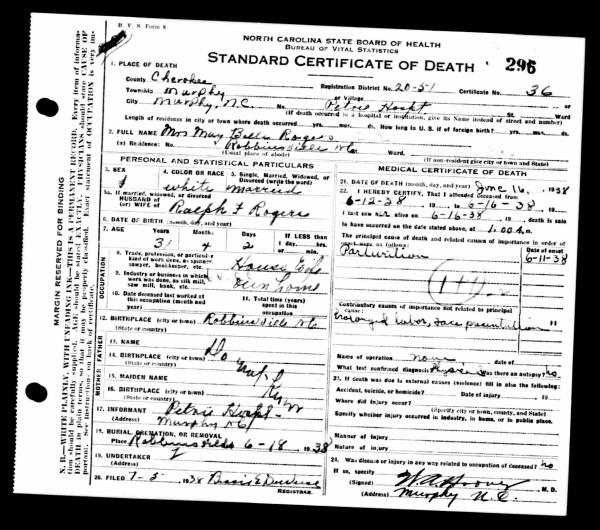 R. V. S Form 8
NORTH CAROLINA STATE BOARD OF HEALTH
BUREAU OF VITAL STATISTICS
STANDARD CERTIFICATE OF DEATH
296
1. PLACE OF DEATH
County Cherokee Registration District No. 20-51 Certificate No. 36
Township Murphy or Village
City Murphy, N.C. No. Petrie Hospt St. Ward
(If death occurred in a hospital or institution, give its Name instead of street and number)
Length of residence in city or town where death occurred yrs. mos. ds. How long in U. S. if of foreign birth? yrs. mos. ds.
2. FULL NAME Mrs May Belle Rogers
(a) Residence: No. Robbinsville NC Ward.
(Usual place of abode) (If non-resident give city or town and State)
PERSONAL AND STATISTICAL PARTICULARS
3. SEX
4. COLOR OR RACE
5. Single, Married, Widowed, or Divorced (write the word)
f white married
5a. If married, widowed, or divorced
HUSBAND of
(or) WIFE of Ralph F Rogers
6. DATE OF BIRTH (month, day, and year)
7. AGE Years Months Days If LESS than
31 4 2 1 day, hrs.
or min.
OCCUPATION
8. Trade, profession, or particular kind of work done, as spinner, sawyer, bookkeeper, etc.
9. Industry or business in which work was done, as silk mill, saw mill, bank, etc. Own home
10. Date deceased last worked at this occupation (month and year)
11. Total time (years) spent in this occupation
12. BIRTHPLACE (city or town) Robbinsville NC
(State or country)
FATHER
13. NAME
14. BIRTHPLACE (city or town)
(State or country)
MOTHER
15. MAIDEN NAME
16. BIRTHPLACE (city or town)
(State or country)
17. INFORMANT Petrie Hospt
(Address) Murphy NC
18. BURIAL, CREMATION, OR REMOVAL
Place Robbinsville 6-18, 1938
19. UNDERTAKER
(Address)
20. FILED 7-5, 1938
REGISTRAR.
MEDICAL CERTIFICATE OF DEATH
21. DATE OF DEATH (month, day, and year) June 16, 1938
22. I HEREBY CERTIFY, That I attended deceased from
6-12-38 to 6-16-38
I last saw her alive on 6-16-38 death is said
to have occurred on the date stated above, at 1:00 A m.
The principal cause of death and related causes of importance in order of onset were as follows:
Date of onset
Parturition 6-11-38
Contributory causes of importance not related to principal cause:
Prolonged labor, face presentation 11
Name of operation none date of
What test confirmed diagnosis? Was there an autopsy? no
23. If death was due to external causes (violence) fill in also the following:
Accident, suicide, or homicide? Date of injury 19
Where did injury occur?
(Specify city or town, county, and State)
Specify whether injury occurred in industry, in home, or in public place.
Manner of Injury
Nature of Injury
24. Was disease or injury in any way related to occupation of deceased? no
If so, specify
(Signed) W. A. Hoover M. D.
(Address) Murphy N.C.
MARGIN RESERVED FOR BINDING
N. B.—WRITE PLAINLY, WITH UNFADING INK—THIS IS A PERMANENT RECORD. Every item of information should be carefully supplied. AGE should be stated EXACTLY. PHYSICIANS should state CAUSE OF DEATH in plain terms, so that it may be properly classified. Exact statement of OCCUPATION is very important. See instructions on back of certificate.